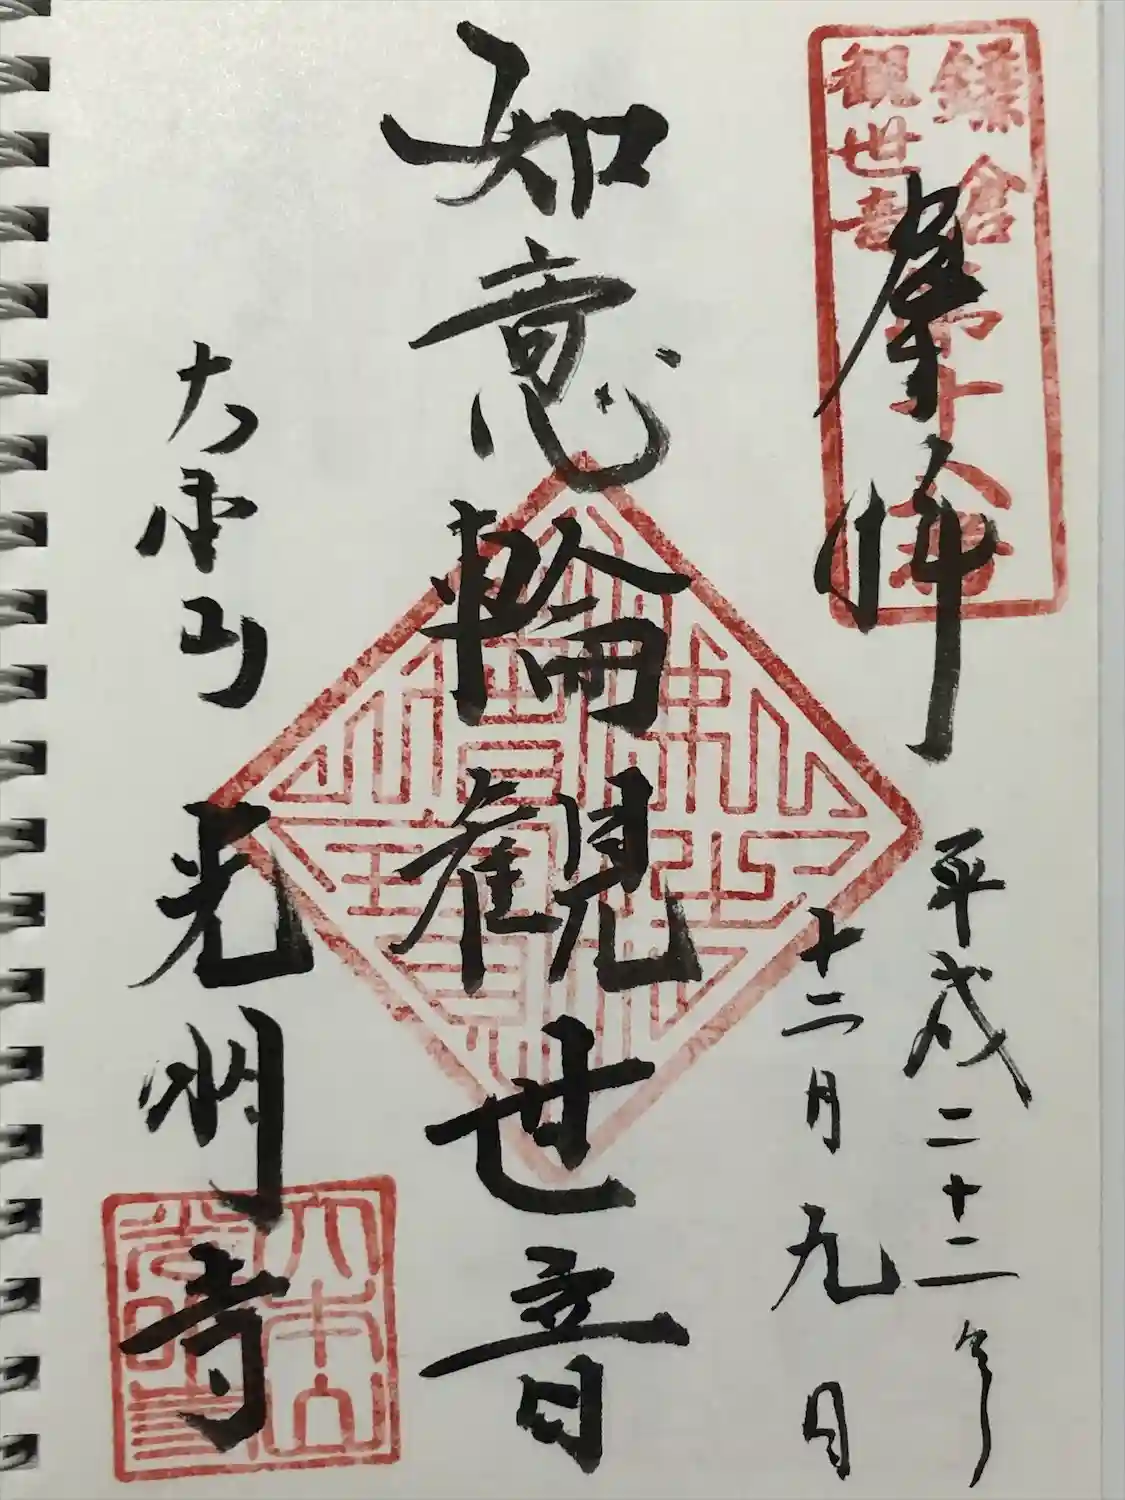 鎌倉第十八番
観世音
奉拝
平成二十二年
十二月九日
如意輪観世音
大本山 光明寺
大本山
光明寺